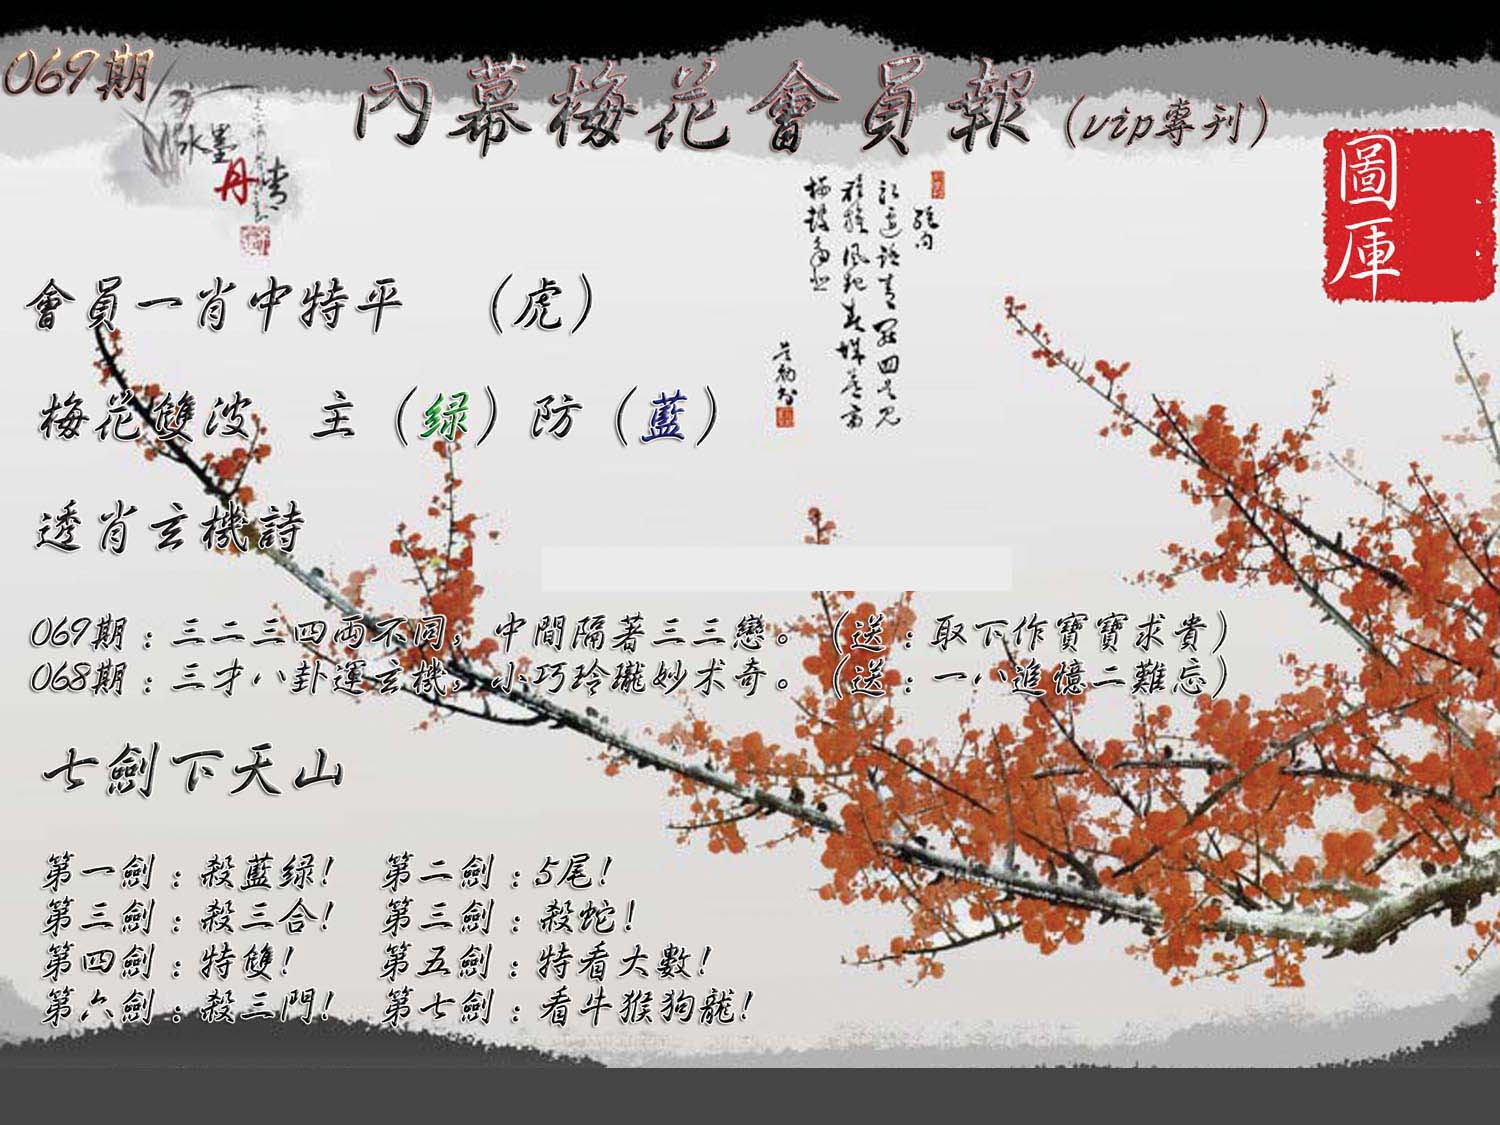 069期
內幕梅花會員報(vip專刊)
水墨
丹青
圖庫
會員一肖中特平 (虎)
梅花雙波 主(绿)防(藍)
透肖玄機詩
069期:三二三四両不同,中間隔著三三戀。(送:取下作寶寶求貴)
068期:三才八卦運玄機,小巧玲瓏妙术奇。(送:一八追憶二難忘)
七劍下天山
第一劍:殺藍绿! 第二劍:5尾!
第三劍:殺三合! 第三劍:殺蛇!
第四劍:特雙! 第五劍:特看大數!
第六劍:殺三門! 第七劍:看牛猴狗龍!